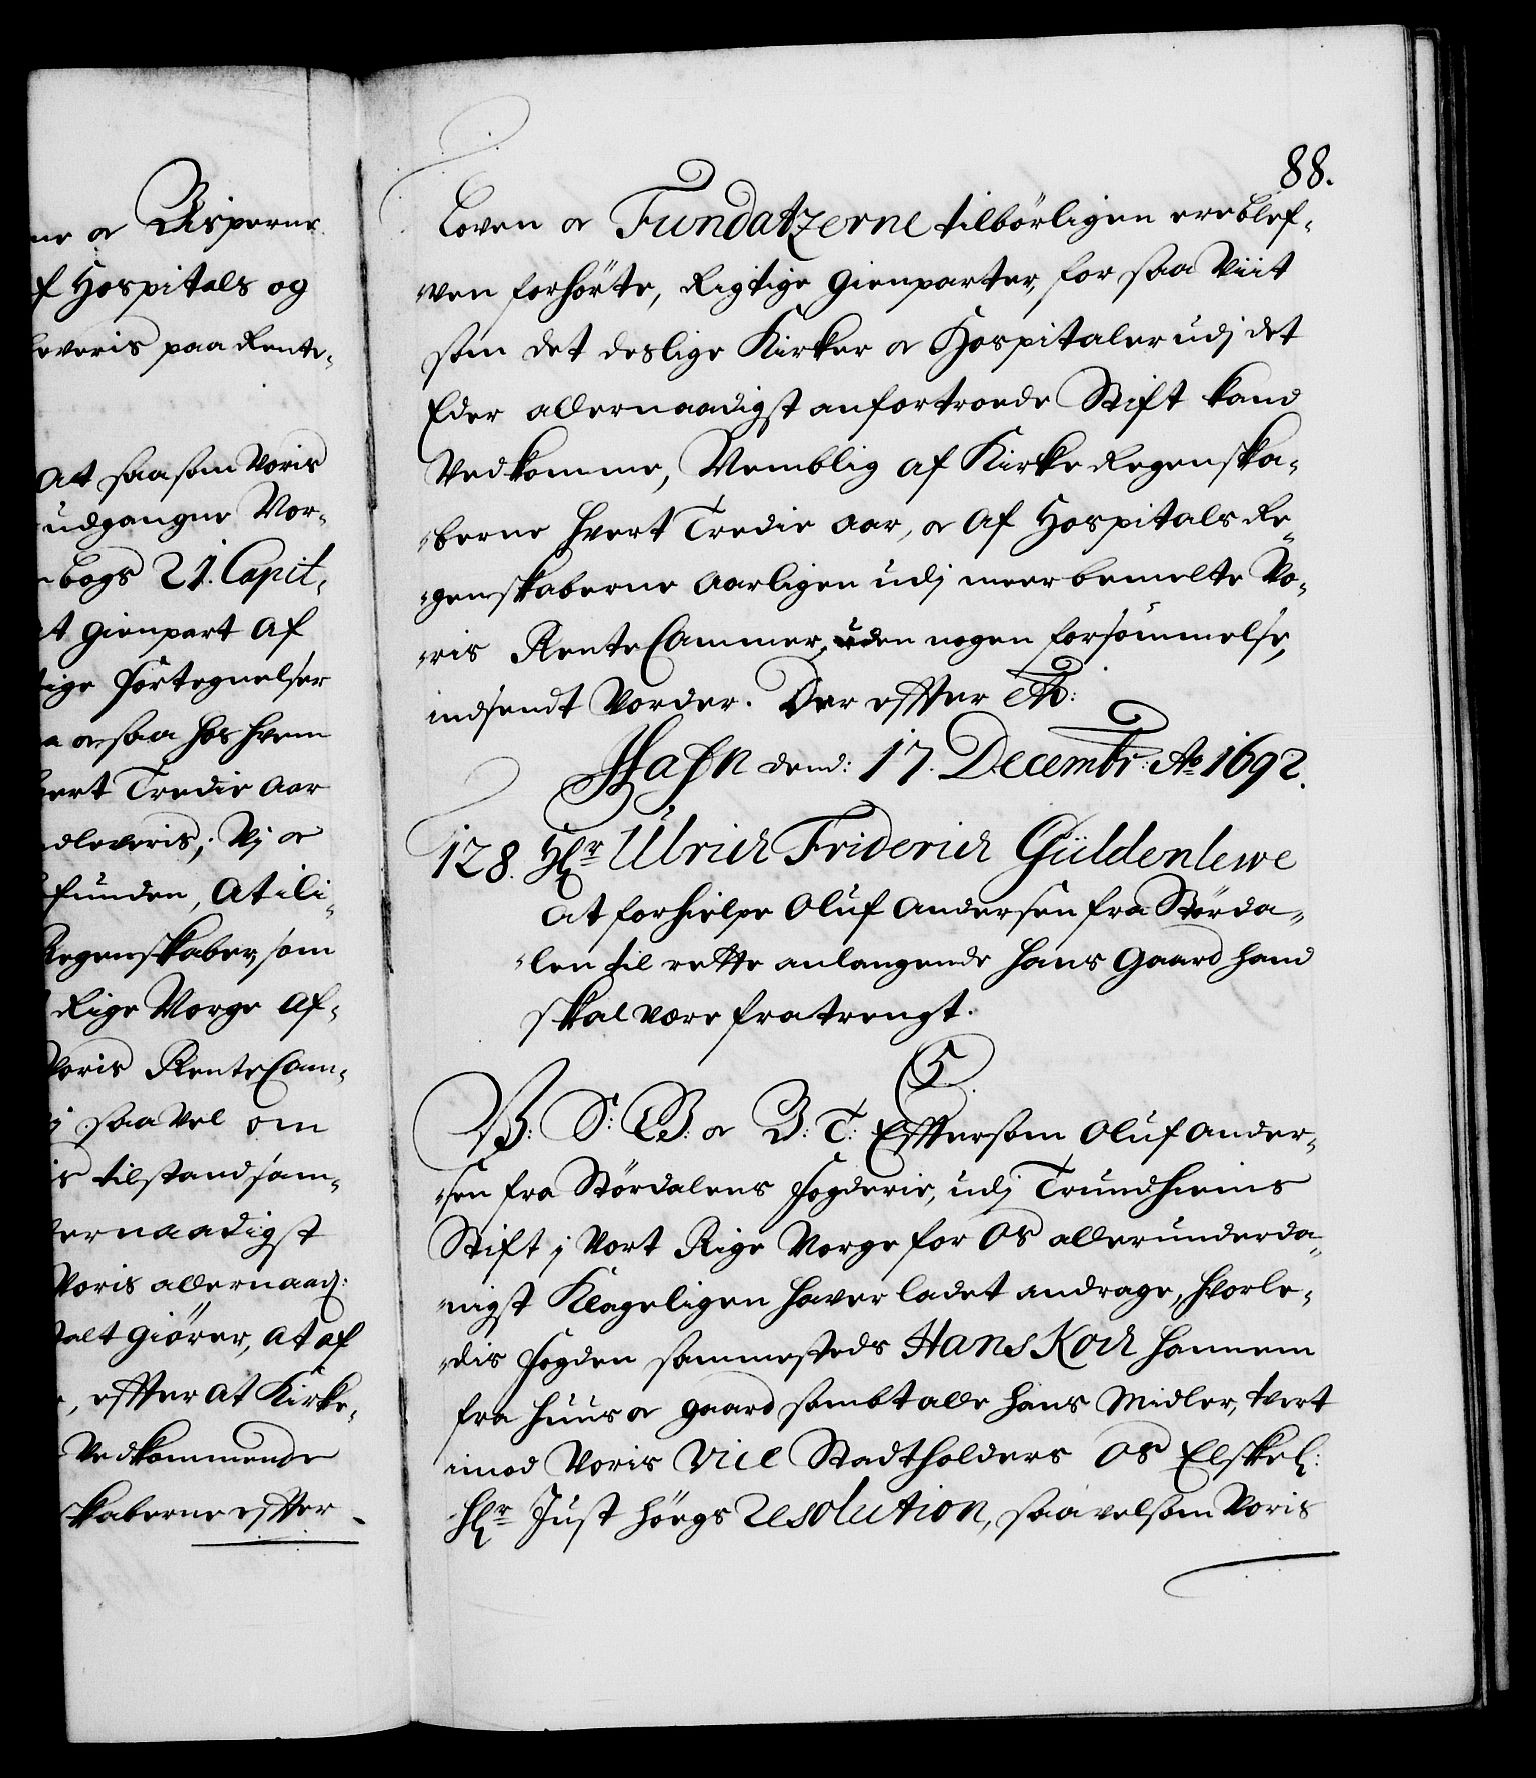 ne oc Bisperne
f Hospitals og
leveris paa Rente-
At saasom Voris
udgangne Nor-
bogs 21. Capit-
t gienpart af
tige fortegnelser
a ocsaa hos hvem
hvert Tredie Aar
dleveris; Vi oc
funden, at ili-
Regenskaber, som
Rige Norge af-
Voris RenteCam-
i saavel om
is tilstand sam-
lernaadigst
Voris allernaad:
talt giører, at af
, effter at Kirke-
Vedkommende
skaberne effter
88.
Loven oc Fundatzerne tilbörligen ere blef-
ven forhörte, Rigtige Gienparter, for saa Viit
som det deslige Kirker oc Hospitaler udj det
Eder allernaadigst anfortroede Stift kand
Vedkomme, Nemblig af Kirke Regenska-
berne hvert Tredie Aar, oc af Hospitals Re-
genskaberne Aarligen udj meerbemelte Vo-
ris RenteCammer, uden nogen forsömmelse,
indsendt Vorder. Der effter etc:
Hafn dend: 17. Decembr: Ao 1692.
128. Hr Ulrich Friderich Güldenlewe
At forhielpe Oluf Andersen fra Störda-
len til rette anlangende hans Gaard hand
skal være fratrengt.
C5.
V: S: G: oc B: T: Efftersom Oluf Ander-
sen fra Stördalens fogderie, udj Trundhiems
Stift j Vort Rige Norge for Os allerunderda-
nigst Klageligen haver ladet andrage, hvorle-
dis fogden sammesteds Hans Koch hannem
fra huus oc gaard sambt alle hans Midler, tvert
imod Voris Vice Stadtholders Os Elskel:
Hr Just Höegs Resolution, saavelsom Voris